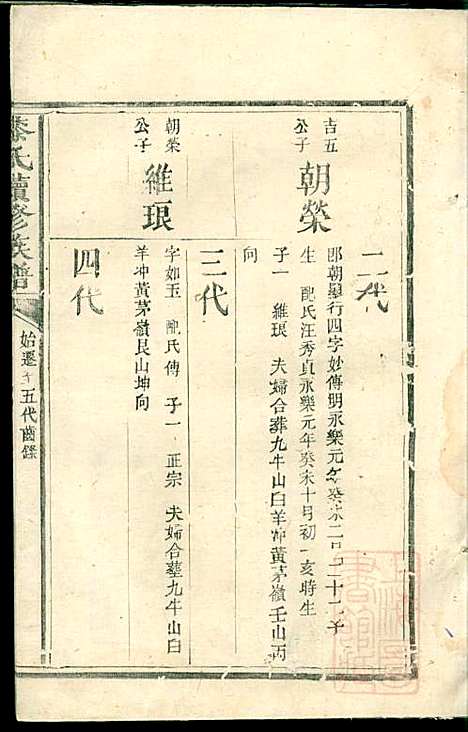 二代
吉五
公子
朝榮
郎朝舉行四字妙傳明永樂元年癸未二月二十二子
生 配氏汪秀貞永樂元年癸未十月初一亥時生
子一 維琅 夫婦合葬九牛山白羊冲黄茅嶺壬山丙
向
三代
朝榮
公子
維琅
字如玉 配氏傅 子一 正宗 夫婦合塟九牛山白
羊冲黄茅嶺艮山坤向
四代
氏續修族譜
始遷 五代齒錄